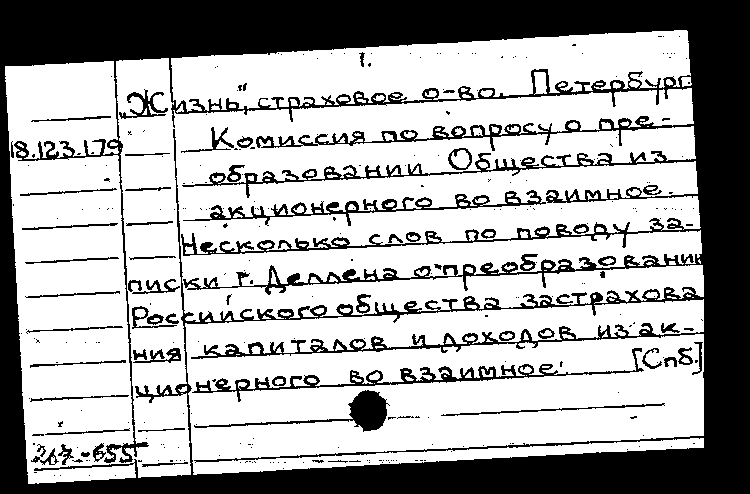 1.
„Жизнь", страховое о-во. Петербург
18.123.1.79
Комиссия по вопросу о пре-
образовании Общества из
акционерного во взаимное.
Несколько слов по поводу за-
писки г. Деллена о преобразовании
Российского общества застрахова
ния капиталов и доходов из ак-
ционерного во взаимное. [Спб.]
267-655